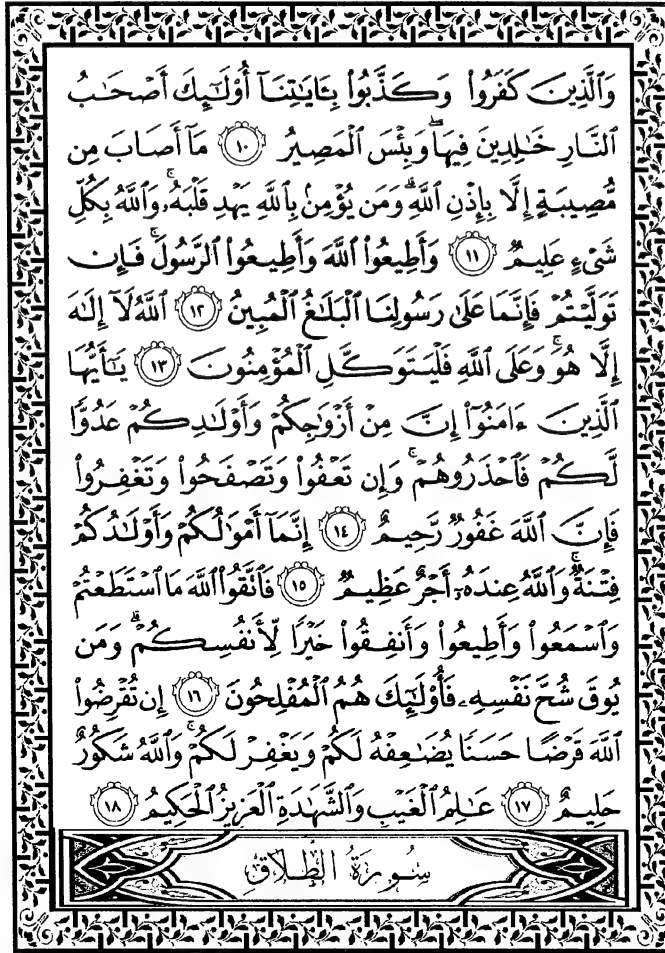 وَٱلَّذِينَ كَفَرُوا۟ وَكَذَّبُوا۟ بِـَٔايَٰتِنَآ أُو۟لَٰٓئِكَ أَصْحَٰبُ
ٱلنَّارِ خَٰلِدِينَ فِيهَا ۖ وَبِئْسَ ٱلْمَصِيرُ ١٠ مَآ أَصَابَ مِن
مُّصِيبَةٍ إِلَّا بِإِذْنِ ٱللَّهِ ۗ وَمَن يُؤْمِنۢ بِٱللَّهِ يَهْدِ قَلْبَهُۥ ۚ وَٱللَّهُ بِكُلِّ
شَىْءٍ عَلِيمٌ ١١ وَأَطِيعُوا۟ ٱللَّهَ وَأَطِيعُوا۟ ٱلرَّسُولَ ۚ فَإِن
تَوَلَّيْتُمْ فَإِنَّمَا عَلَىٰ رَسُولِنَا ٱلْبَلَٰغُ ٱلْمُبِينُ ١٢ ٱللَّهُ لَآ إِلَٰهَ
إِلَّا هُوَ ۚ وَعَلَى ٱللَّهِ فَلْيَتَوَكَّلِ ٱلْمُؤْمِنُونَ ١٣ يَٰٓأَيُّهَا
ٱلَّذِينَ ءَامَنُوٓا۟ إِنَّ مِنْ أَزْوَٰجِكُمْ وَأَوْلَٰدِكُمْ عَدُوًّا
لَّكُمْ فَٱحْذَرُوهُمْ ۚ وَإِن تَعْفُوا۟ وَتَصْفَحُوا۟ وَتَغْفِرُوا۟
فَإِنَّ ٱللَّهَ غَفُورٌ رَّحِيمٌ ١٤ إِنَّمَآ أَمْوَٰلُكُمْ وَأَوْلَٰدُكُمْ
فِتْنَةٌ ۚ وَٱللَّهُ عِندَهُۥٓ أَجْرٌ عَظِيمٌ ١٥ فَٱتَّقُوا۟ ٱللَّهَ مَا ٱسْتَطَعْتُمْ
وَٱسْمَعُوا۟ وَأَطِيعُوا۟ وَأَنفِقُوا۟ خَيْرًا لِّأَنفُسِكُمْ ۗ وَمَن
يُوقَ شُحَّ نَفْسِهِۦ فَأُو۟لَٰٓئِكَ هُمُ ٱلْمُفْلِحُونَ ١٦ إِن تُقْرِضُوا۟
ٱللَّهَ قَرْضًا حَسَنًا يُضَٰعِفْهُ لَكُمْ وَيَغْفِرْ لَكُمْ ۚ وَٱللَّهُ شَكُورٌ
حَلِيمٌ ١٧ عَٰلِمُ ٱلْغَيْبِ وَٱلشَّهَٰدَةِ ٱلْعَزِيزُ ٱلْحَكِيمُ ١٨
سُورَةُ الطَّلَاقِ